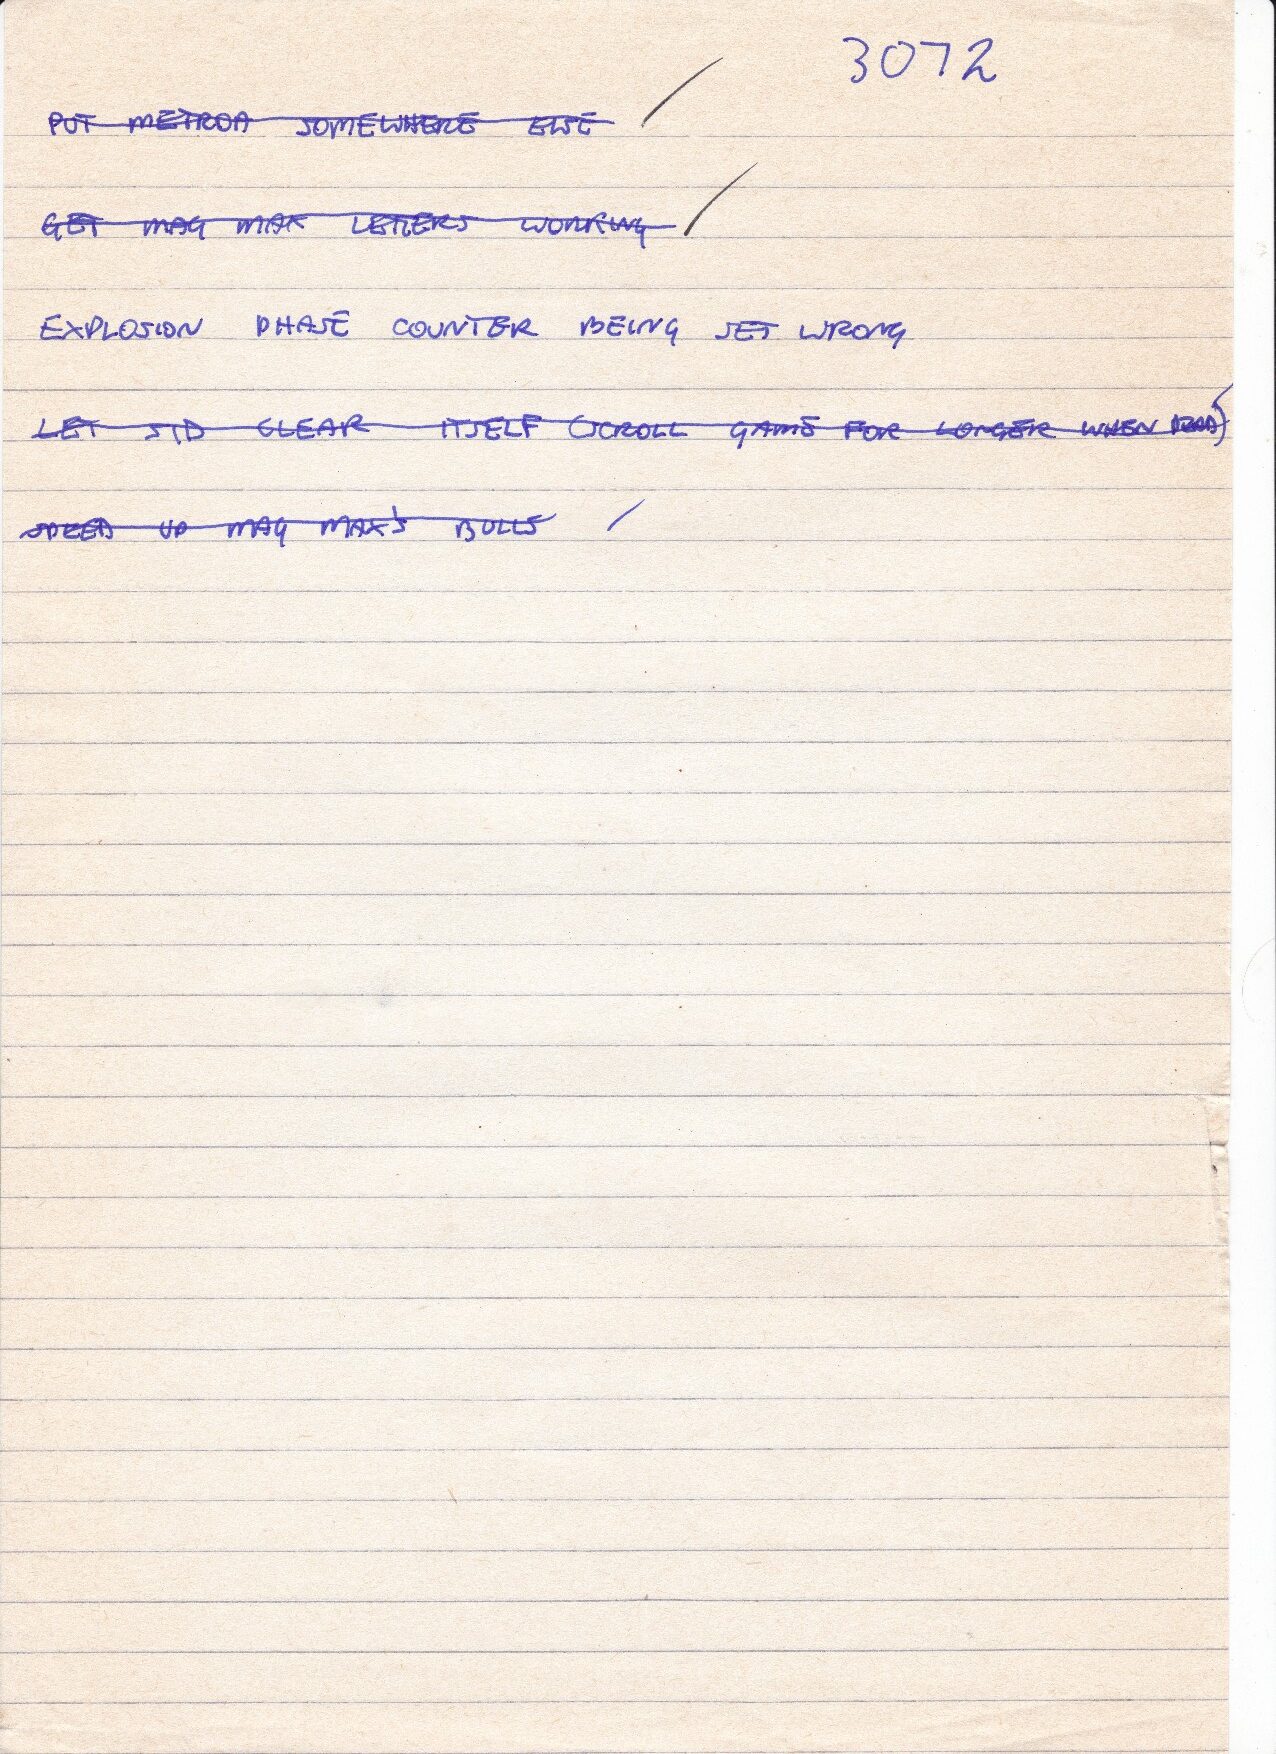 3072
PUT METROA SOMEWHERE ELSE
GET MAG MAX LETTERS WORKING
EXPLOSION PHASE COUNTER BEING SET WRONG
LET SID CLEAR ITSELF (SCROLL GAME FOR LONGER WHEN DEAD)
SPEED UP MAG MAX'S BULLS